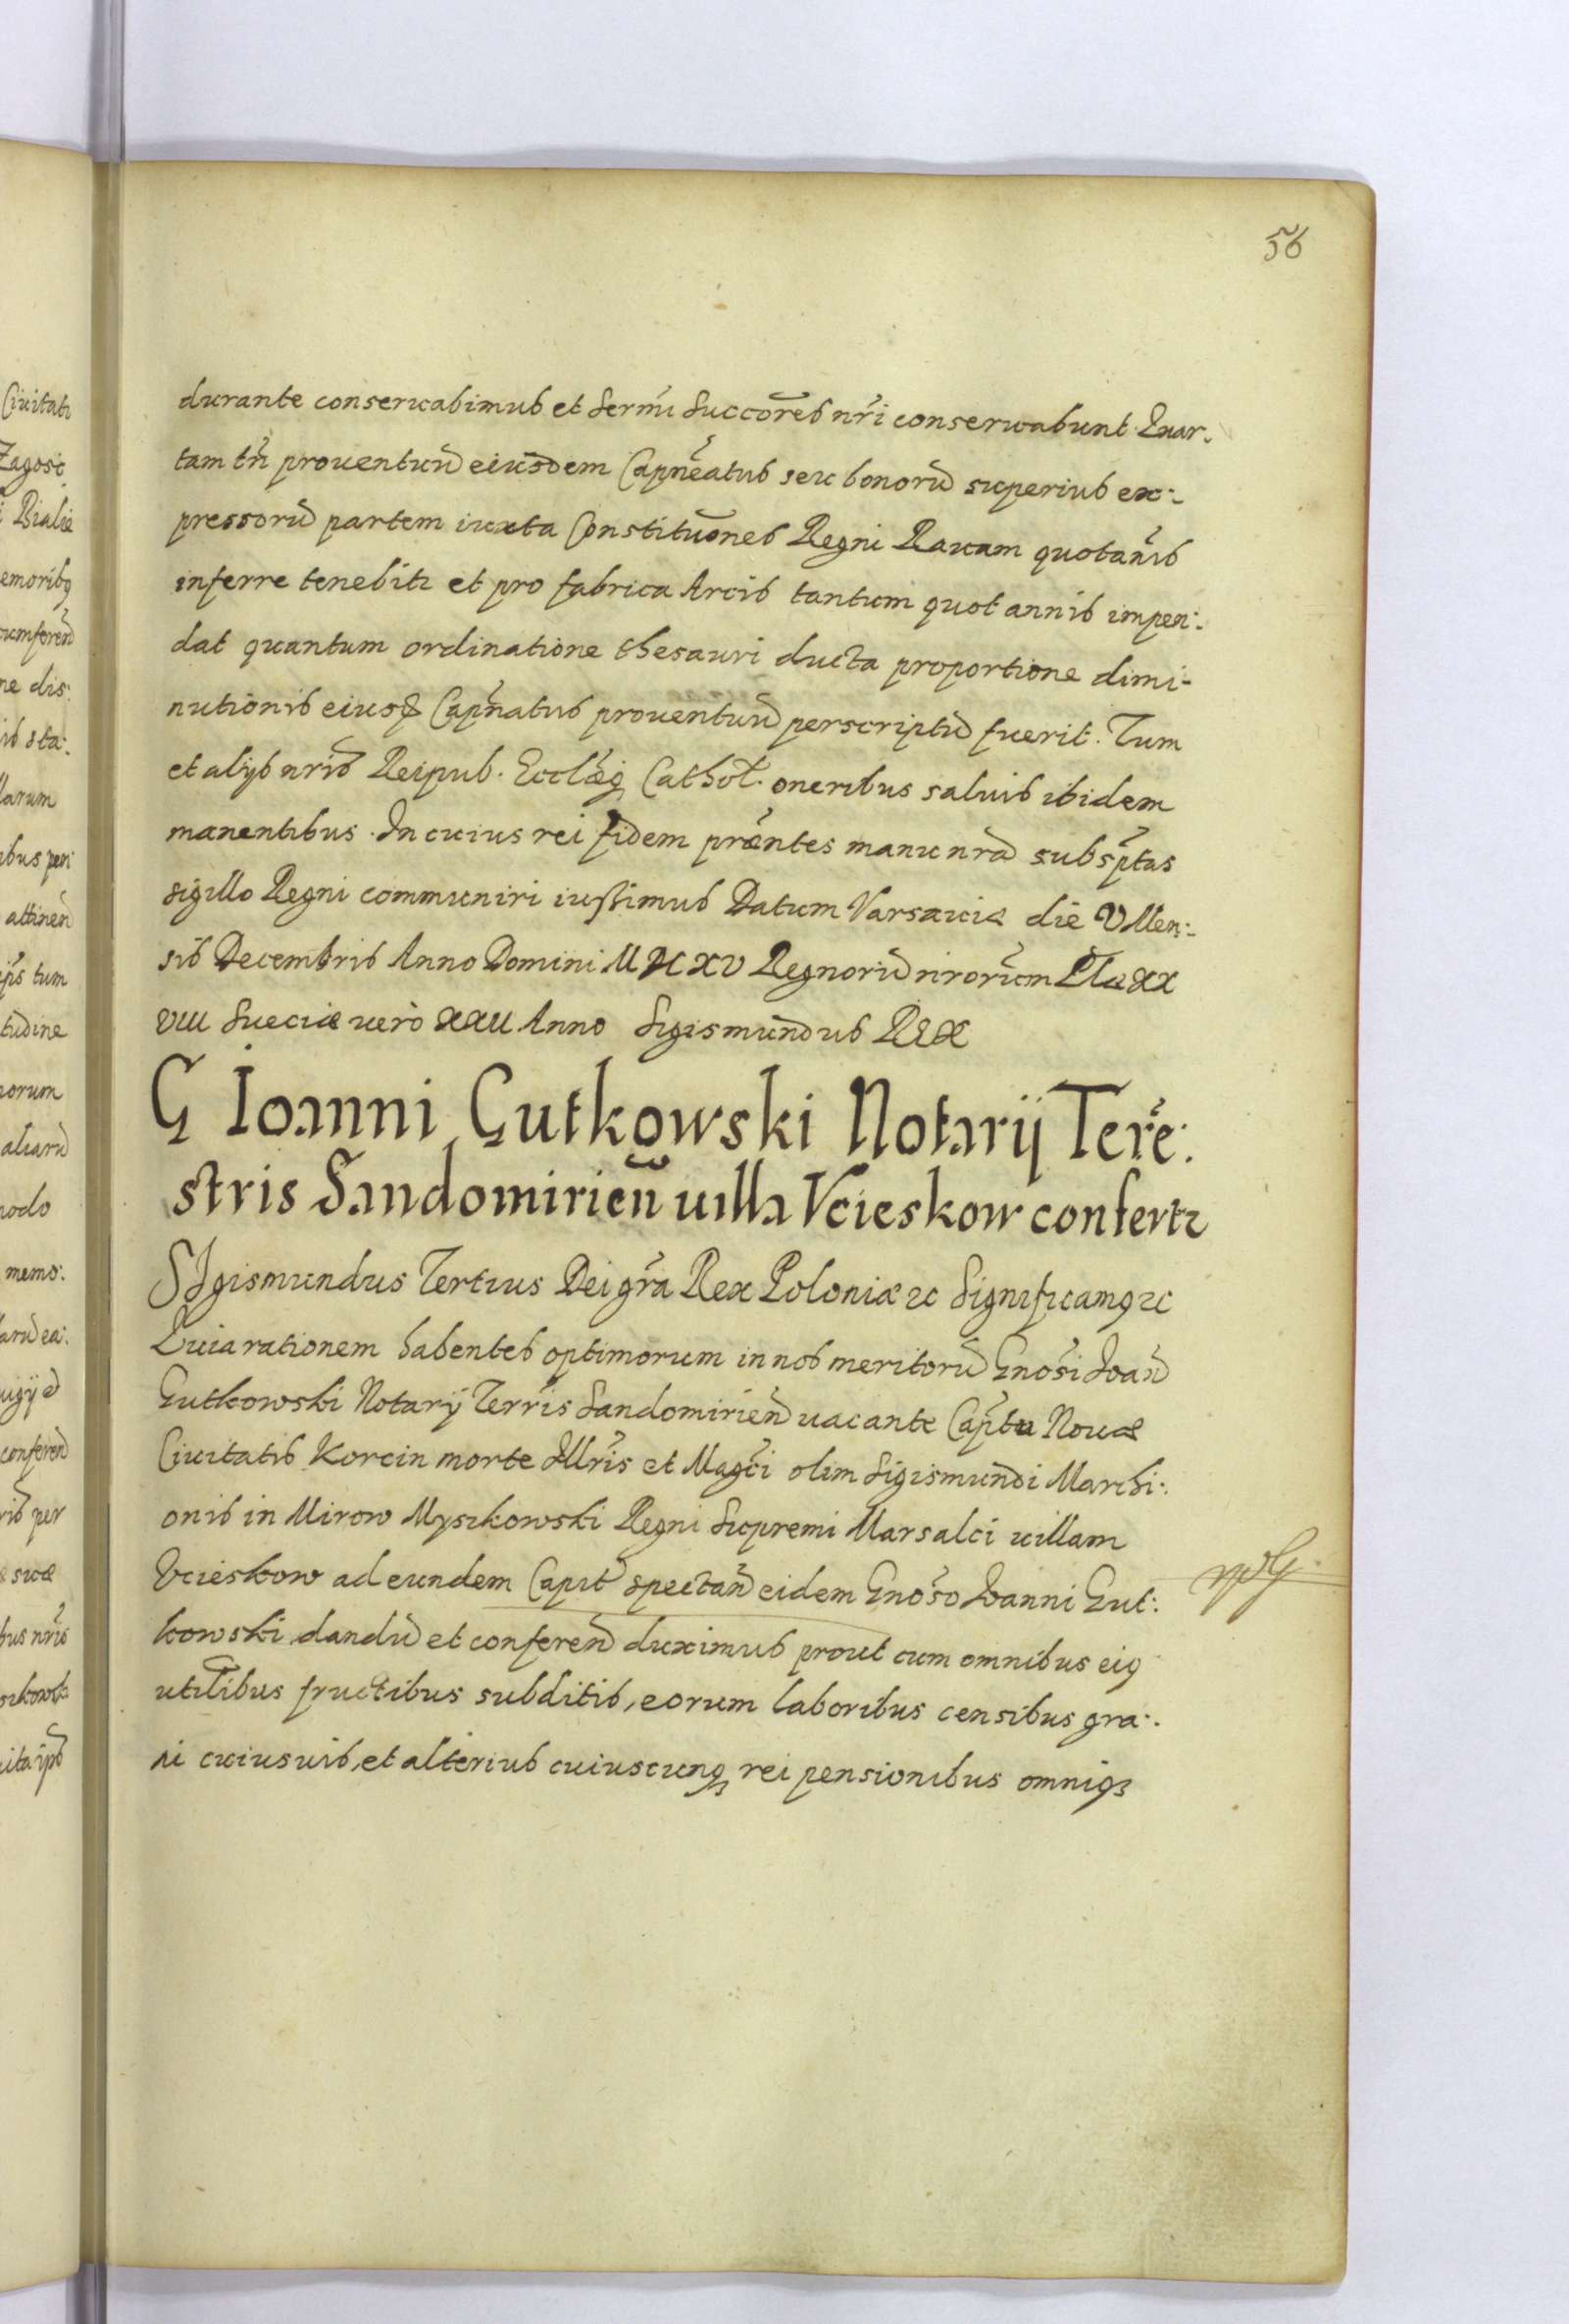 56
durante conseruabimus et Sermi Succores nri conseruabunt. Quar-
tam tn prouentuu eiusdem Capneatus seu bonoru superius ex:
pressoru partem iuxta Constitutiones Regni Rauam quotanis
inferre tenebitr et pro fabrica Arcis tantum quot annis impen:
dat quantum ordinatione thesauri ducta proportione dimi-
nutionis eiusd Capnatus prouentuu perscriptu fuerit. Tum
et alijs nris Reipub. Ecclaeq Cathol. oneribus saluis ibidem
manentibus. In cuius rei fidem praentes manu nra subsptas
sigillo Regni communiri iussimus Datum Varsauiæ die V Men:
sis Decembris Anno Domini MDCXV Regnoru nrorum Plæ XX
VIII Sueciæ uerò XXII Anno Sigismundus REX
G Joanni Gutkowski Notarij Tere:
stris Sandomirien uilla Vcieskow confertr
SIgismundus Tertius Dei gra Rex Poloniæ &c Significamq &c
Quia rationem habentes optimorum in nos meritoru Gnosi Joan
Gutkowski Notarij Terris Sandomirien uacante Captu Nouæ
Ciuitatis Korcin morte Illris et Magci olim Sigismundi Marchi:
onis in Mirow Myszkowski Regni Supremi Marsalci uillam
Vcieskow ad eundem Capit spectan eidem Gnoso Joanni Gut:
kowski dandu et conferen duximus prout cum omnibus eiq
utilibus fructibus subditis, eorum laboribus censibus gra:
ni cuiusuis, et alterius cuiuscunq rei pensionibus omniq